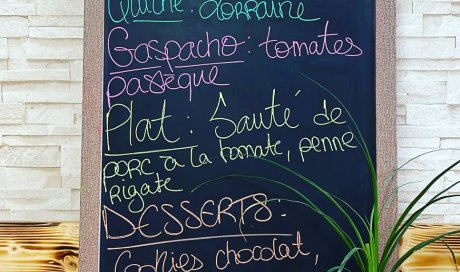 Quiche : Lorraine
Gaspacho : tomates
pastèque
Plat : Sauté de
porc à la tomate, penne
rigate
DESSERTS :
Cookies chocolat,